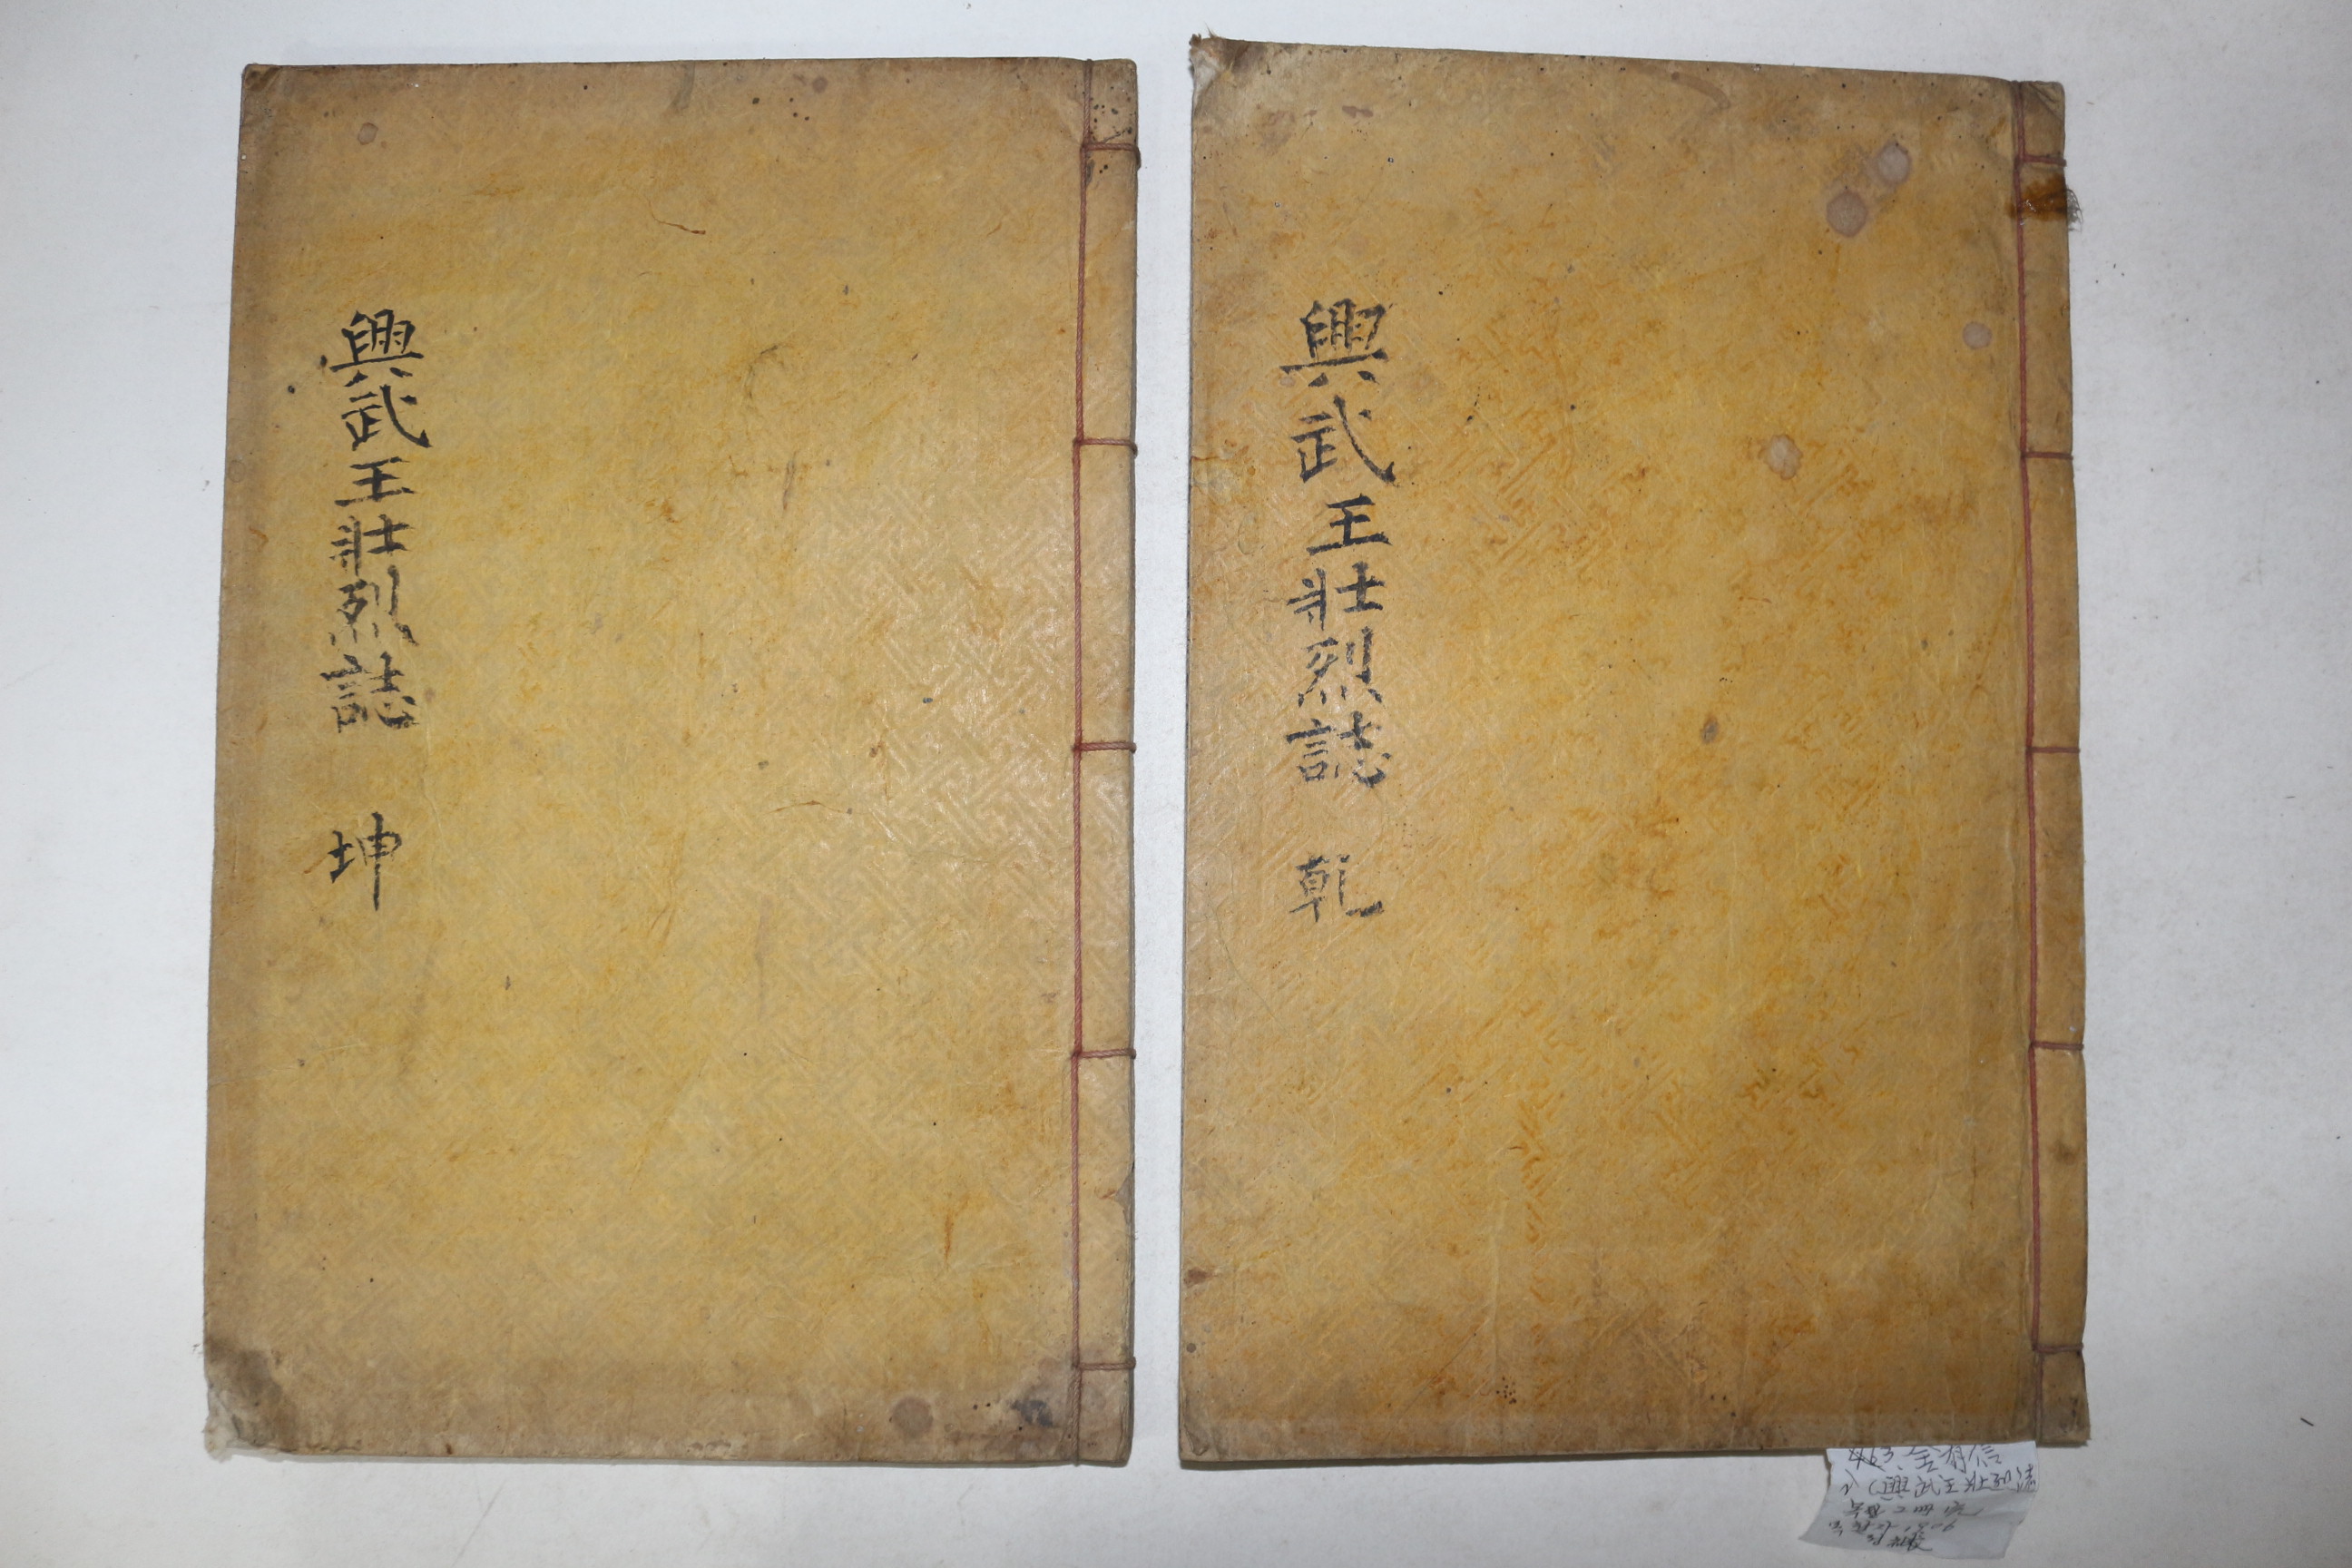 興武王壯烈誌 乾
興武王壯烈誌 坤
463. 金有信
(興武王壯烈誌